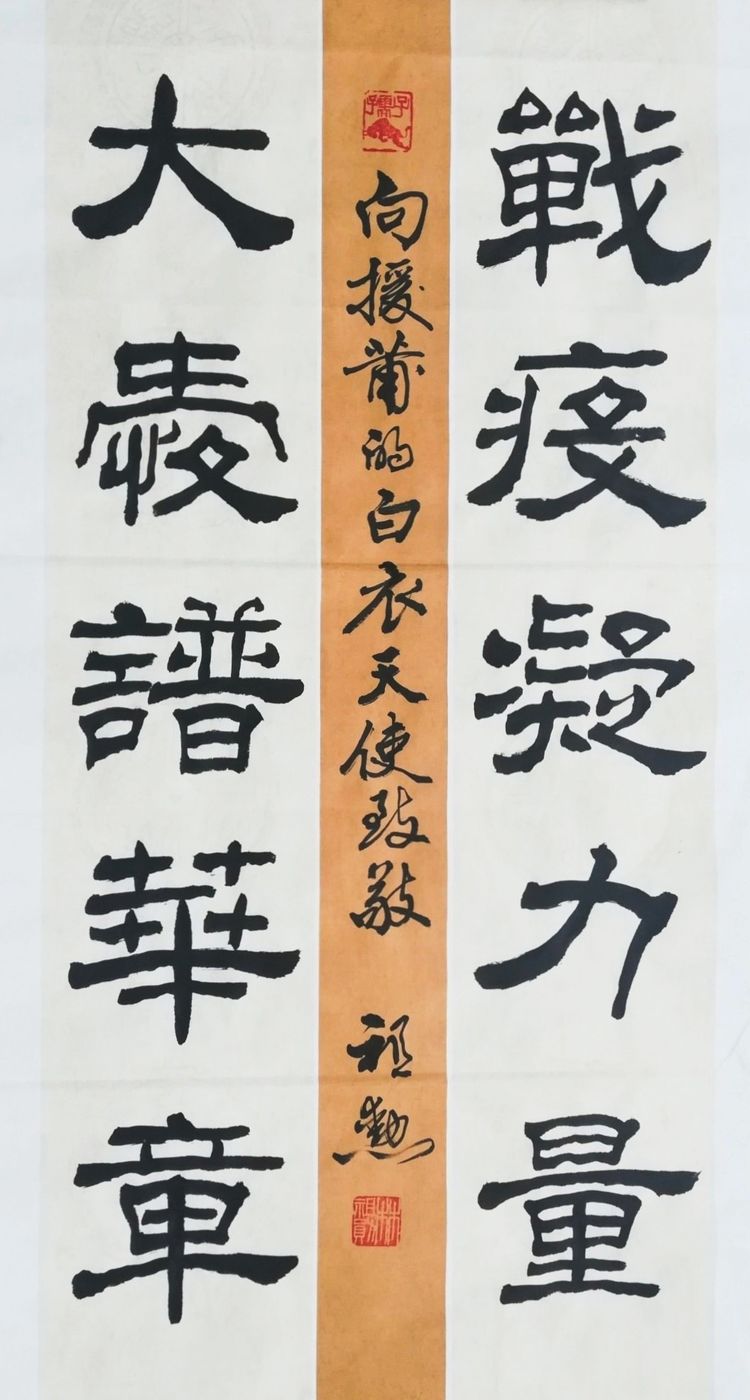 戰疫凝力量
向援莆的白衣天使致敬
祖勳
大愛譜華章